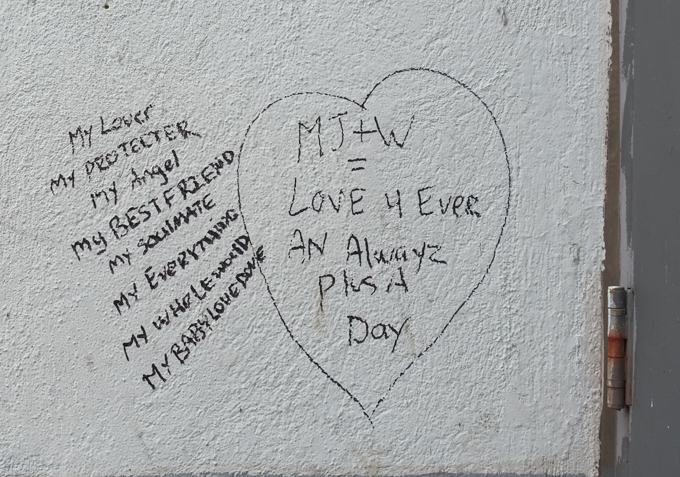 My Lover
My PROTECTER
My Angel
My BEST FRIEND
My SOUlMATE
MY EVERYTHING
MY WHOLE WORlD
MY BABY LOVE DOVE
MJ+W
=
LOVE 4 EVER
AN Alwayz
Plus A
Day